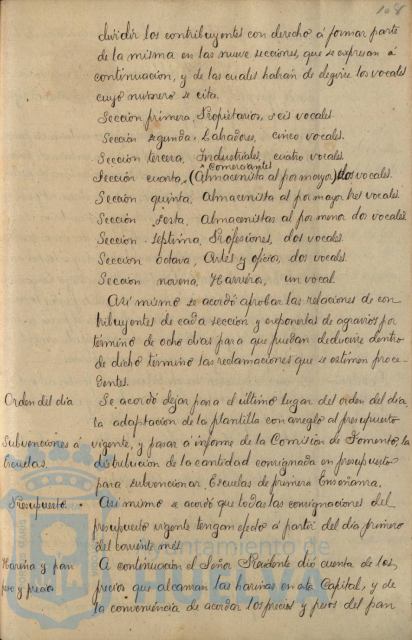 108
dividir los contribuyentes con derecho á formar parte
de la misma en las nueve secciones, que se expresan á
continuacion, y de las cuales habrán de elegirse los vocales
cuyo numero se cita.
Sección primera, Propietarios, seis vocales.
Sección segunda. Labradores, cinco vocales.
Sección tercera, Industriales, cuatro vocales.
Comerciantes
Sección cuarta, (Almacenista al por mayor) dos vocales.
Sección quinta, Almacenista al por mayor tres vocales.
Sección sesta, Almacenistas al por menor dos vocales.
Sección séptima, Profesiones, dos vocales.
Sección octava, Artes y oficios, dos vocales.
Sección novena, Harrieros, un vocal.
Asi mismo se acordó aprobar las relaciones de con
tribuyentes de cada sección y exponerlas de agravios por
término de ocho dias para que puedan deducirse dentro
de dicho término las reclamaciones que se estimen proce-
dentes.
Orden del dia
Se acordó dejar para el último lugar del orden del dia
la adaptación de la plantilla con arreglo al presupuesto
Subvenciones á
vigente, y pasar á informe de la Comision de Fomento, la
Escuelas.
distribución de la cantidad consignada en presupuesto
para subvencionar Escuelas de primera Enseñanza.
Presupuesto.
Asi mismo se acordó que todas las consignaciones del
presupuesto vigente tengan efecto á partir del dia primero
del corriente mes.
Harina y pan
A continuación el Señor Presidente dió cuenta de los
peso y precio
precios que alcanzan las harinas en esta Capital, y de
la conveniencia de acordar los precios y pesos del pan
Ayuntamiento de